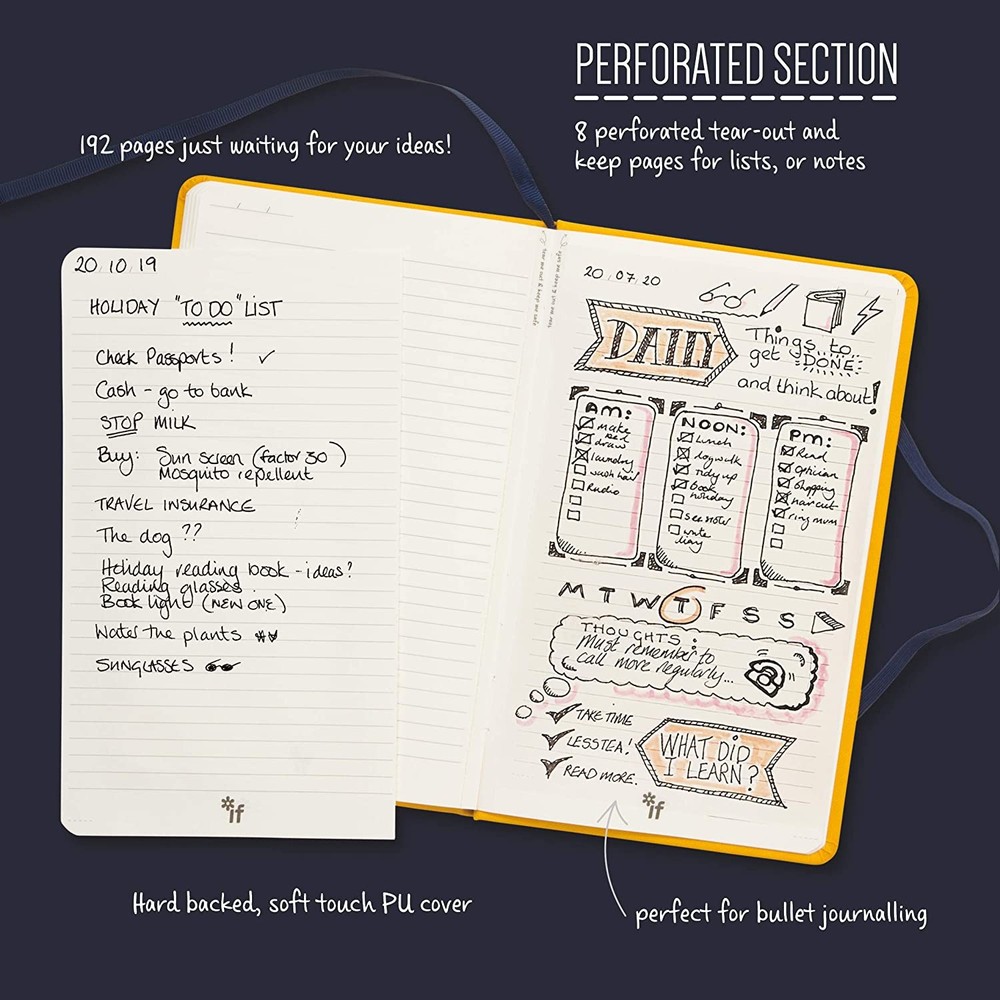 PERFORATED SECTION
8 perforated tear-out and
keep pages for lists, or notes
192 pages just waiting for your ideas!
20.10.19
HOLIDAY "TO DO" LIST
Check Passports! ✓
Cash - go to bank
STOP MILK
Buy: Sun screen (factor 30)
Mosquito repellent
TRAVEL INSURANCE
The dog ??
Holiday reading book - ideas?
Reading glasses.
Book light (NEW ONE)
Water the plants
SUNGLASSES
*if
tear me out & keep me safe
tear me out & keep me safe
20.07.20
DAILY
Things to
get DONE
and think about!
AM:
make
bed
draw
laundry
wash hair
Radio
NOON:
Lunch
dogwalk
Tidy up
book
holiday
see notes
write
diary
Pm:
Read
Optician
Shopping
haircut
ring mum
M T W T F S S
THOUGHTS:
Must remember to
call more regularly...
TAKE TIME
LESS TEA!
READ MORE.
WHAT DID
I LEARN?
*if
Hard backed, soft touch PU cover
perfect for bullet journalling